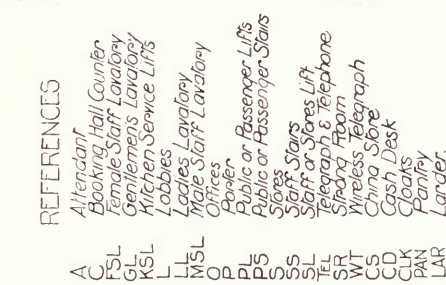 REFERENCES
A Attendant
C Booking Hall Counter
FSL Female Staff Lavatory
GL Gentlemen's Lavatory
KSL Kitchen Service Lifts
L Lobbies
LL Ladies Lavatory
MSL Male Staff Lavatory
O Offices
P Porter
PL Public or Passenger Lifts
PS Public or Passenger Stairs
S Stores
SS Staff Stairs
SL Staff or Stores Lift
TEL Telegraph & Telephone
SR Strong Room
WT Wireless Telegraph
CS China Store
CD Cash Desk
CLK Cloaks
PAN Pantry
LAR Larder.